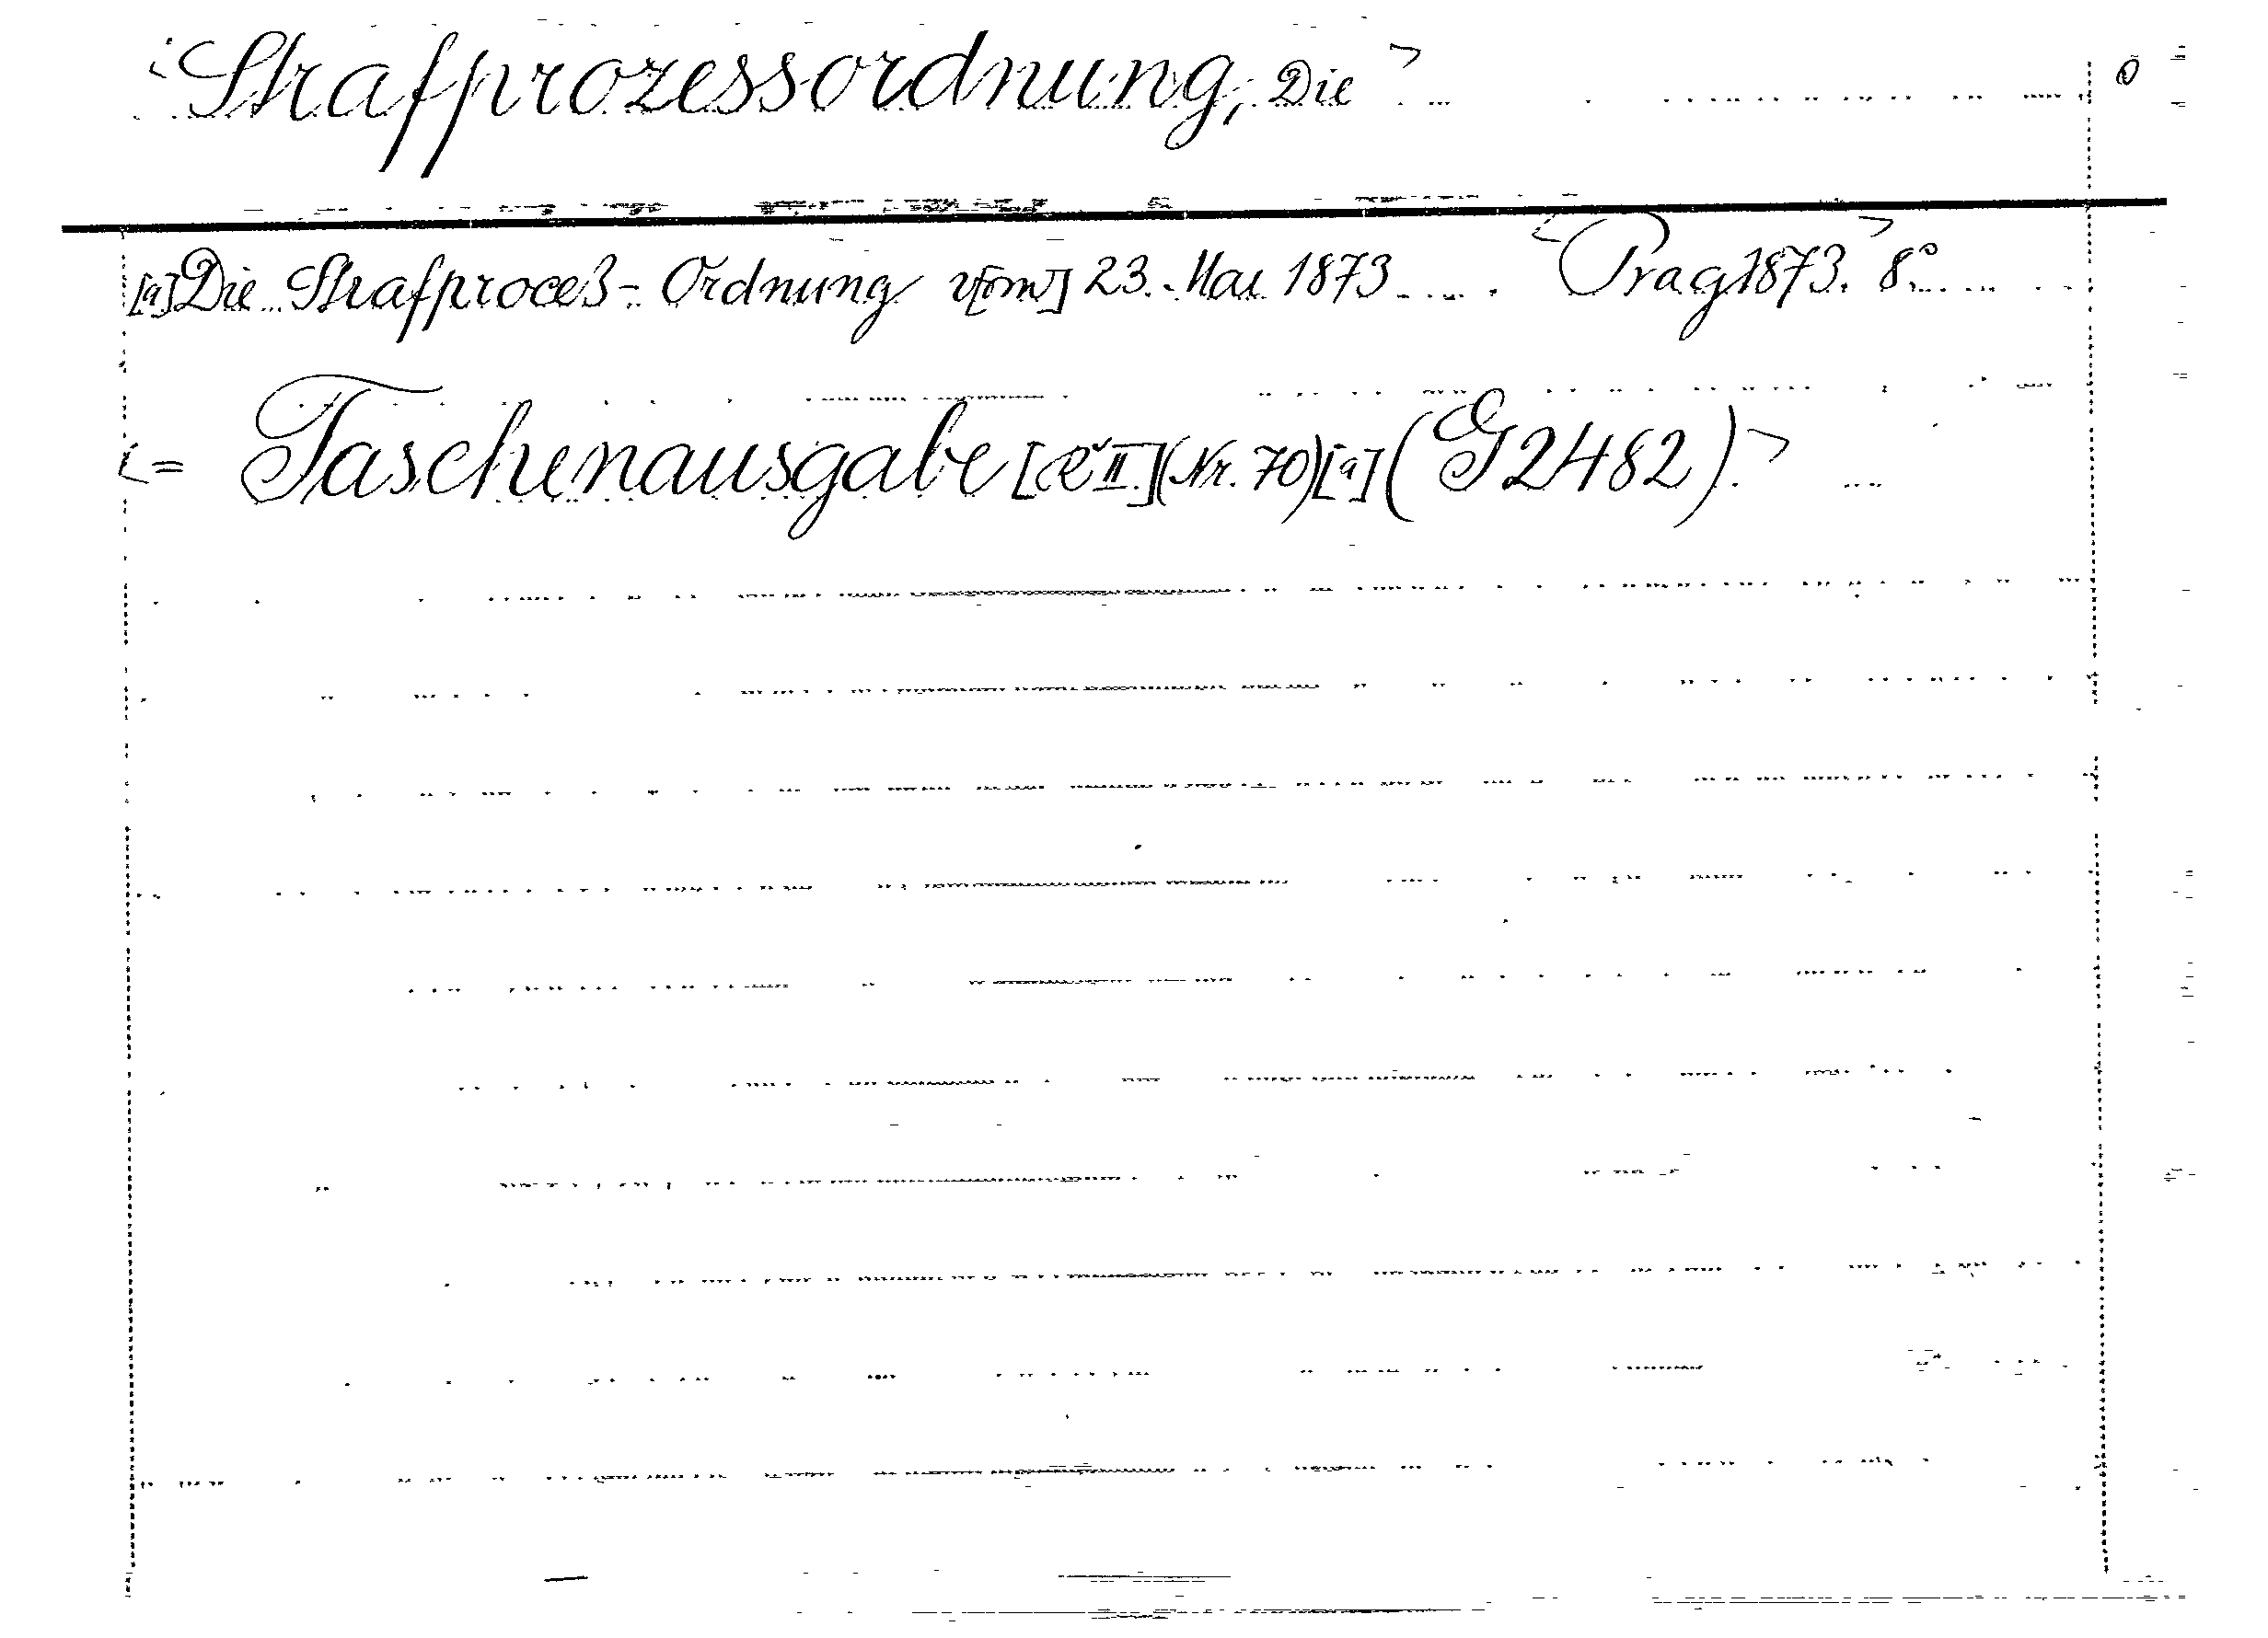 <Strafprozessordnung, Die> 0
[a] Die Strafproceß-Ordnung v[om] 23. Mai 1873 .... . <Prag> 1873. 8°.
<= Taschenausgabe [R II] (Nr. 70) [a] (G 2482).>